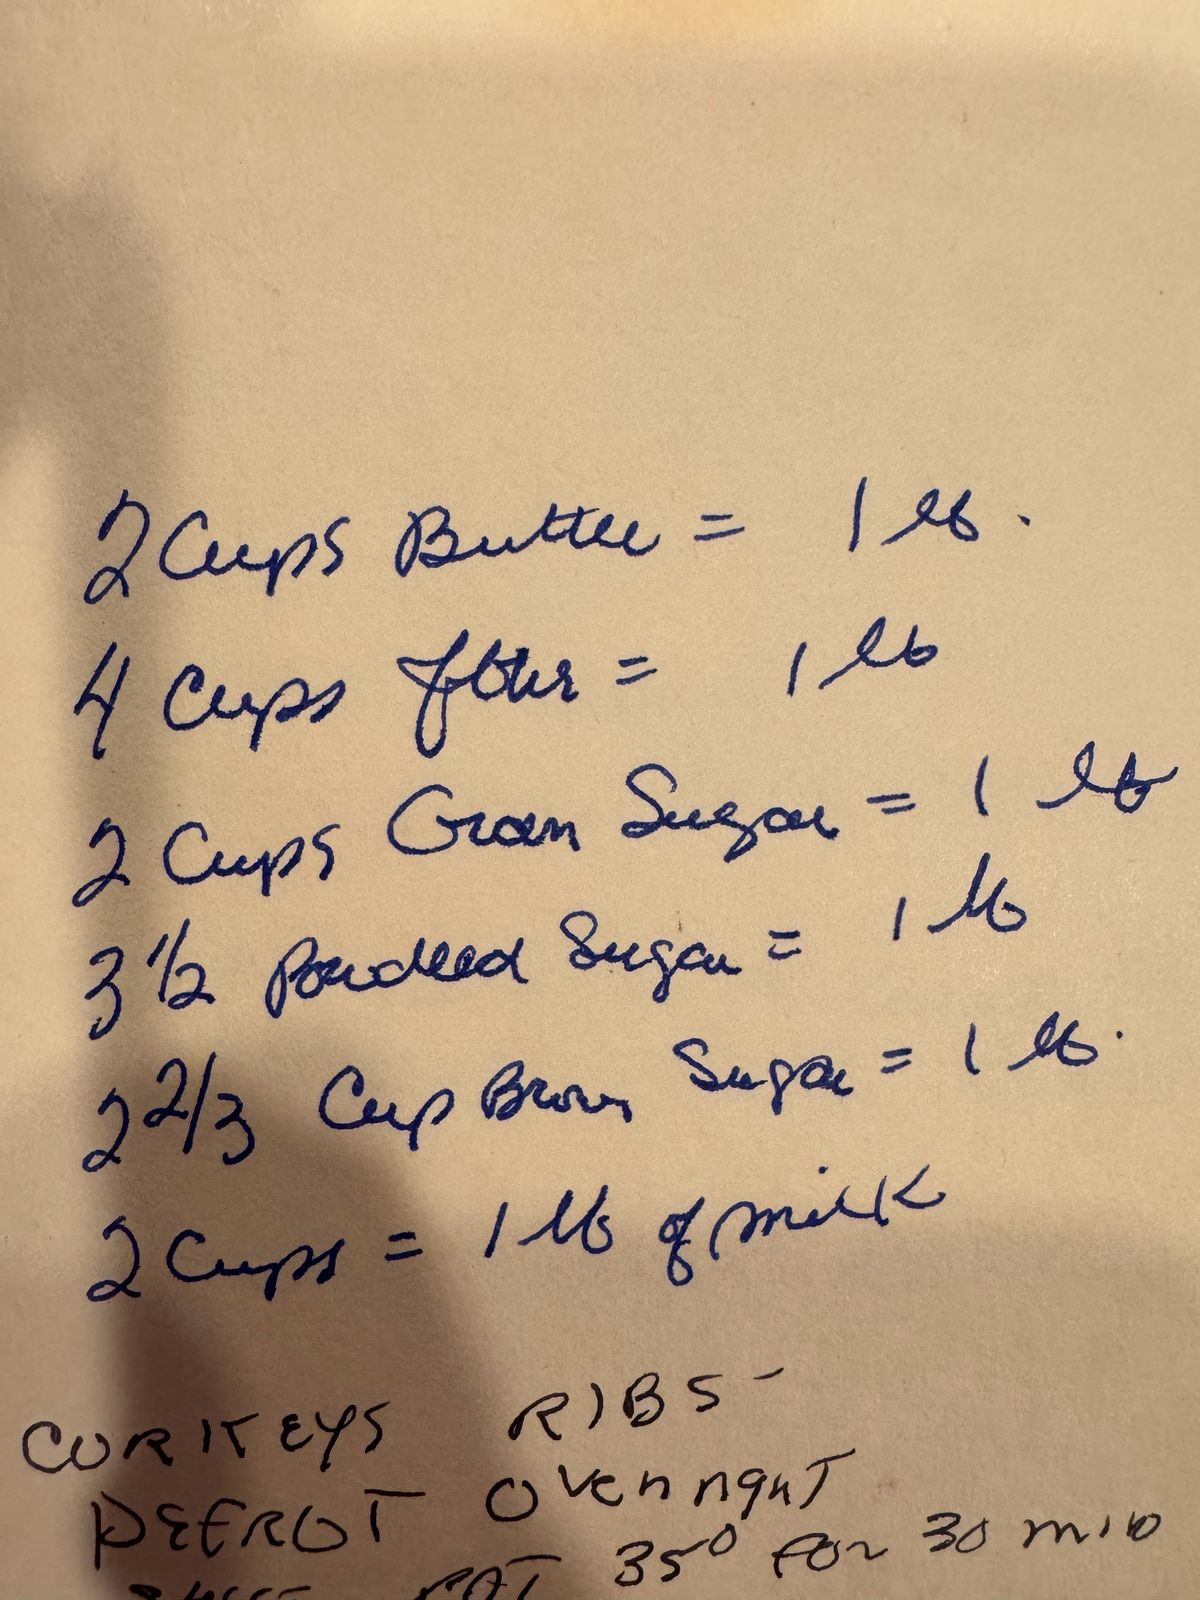 2 Cups Butter = 1 lb.
4 Cups flour = 1 lb
2 Cups Gran Sugar = 1 lb
3 1/2 Powdered Sugar = 1 lb
2 2/3 Cup Brown Sugar = 1 lb.
2 Cups = 1 lb of milk
CORKEYS RIBS -
DEFROT OVERNIGHT
AT 350 FOR 30 MIN